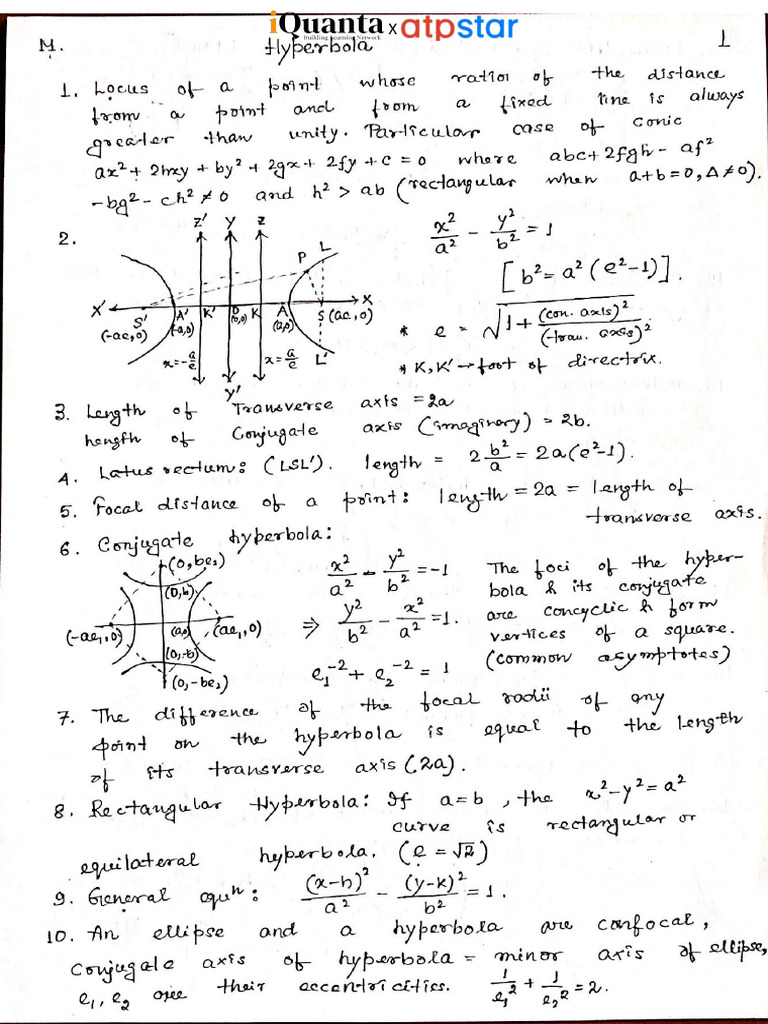 iQuanta x atpstar
Building Learning Network
M. Hyperbola 1
1. Locus of a point whose ratio of the distance
from a point and from a fixed line is always
greater than unity. Particular case of conic
ax² + 2hxy + by² + 2gx + 2fy + c = 0 where abc + 2fgh - af²
-bg² - ch² ≠ 0 and h² > ab (rectangular when a+b=0, Δ≠0).
2.
Z' Y Z
P L
X' S' A' K' O K A S (ae,0) X
(-ae,0) (-a,0) (0,0) (a,0)
x=-a/e x=a/e L'
Y'
x²/a² - y²/b² = 1
[b² = a² (e²-1)].
* e = √(1 + (con. axis)²/(tran. axis)²)
* K, K' → foot of directrix.
3. Length of Transverse axis = 2a
Length of Conjugate axis (imaginary) = 2b.
4. Latus rectum: (LSL'). length = 2 b²/a = 2a(e²-1).
5. Focal distance of a point: length = 2a = length of
transverse axis.
6. Conjugate hyperbola:
(0, be₂)
(0,b)
(-ae₁,0) (a,0) (ae₁,0)
(0,-b)
(0,-be₂)
x²/a² - y²/b² = -1
⇒ y²/b² - x²/a² = 1.
e₁⁻² + e₂⁻² = 1
The foci of the hyper-
bola & its conjugate
are concyclic & form
vertices of a square.
(common asymptotes)
7. The difference of the focal radii of any
point on the hyperbola is equal to the length
of its transverse axis (2a).
8. Rectangular Hyperbola: If a=b, the x²-y²=a²
curve is rectangular or
equilateral hyperbola. (e = √2)
9. General equⁿ: (x-h)²/a² - (y-k)²/b² = 1.
10. An ellipse and a hyperbola are confocal,
conjugate axis of hyperbola = minor axis of ellipse,
e₁, e₂ are their eccentricities. 1/e₁² + 1/e₂² = 2.